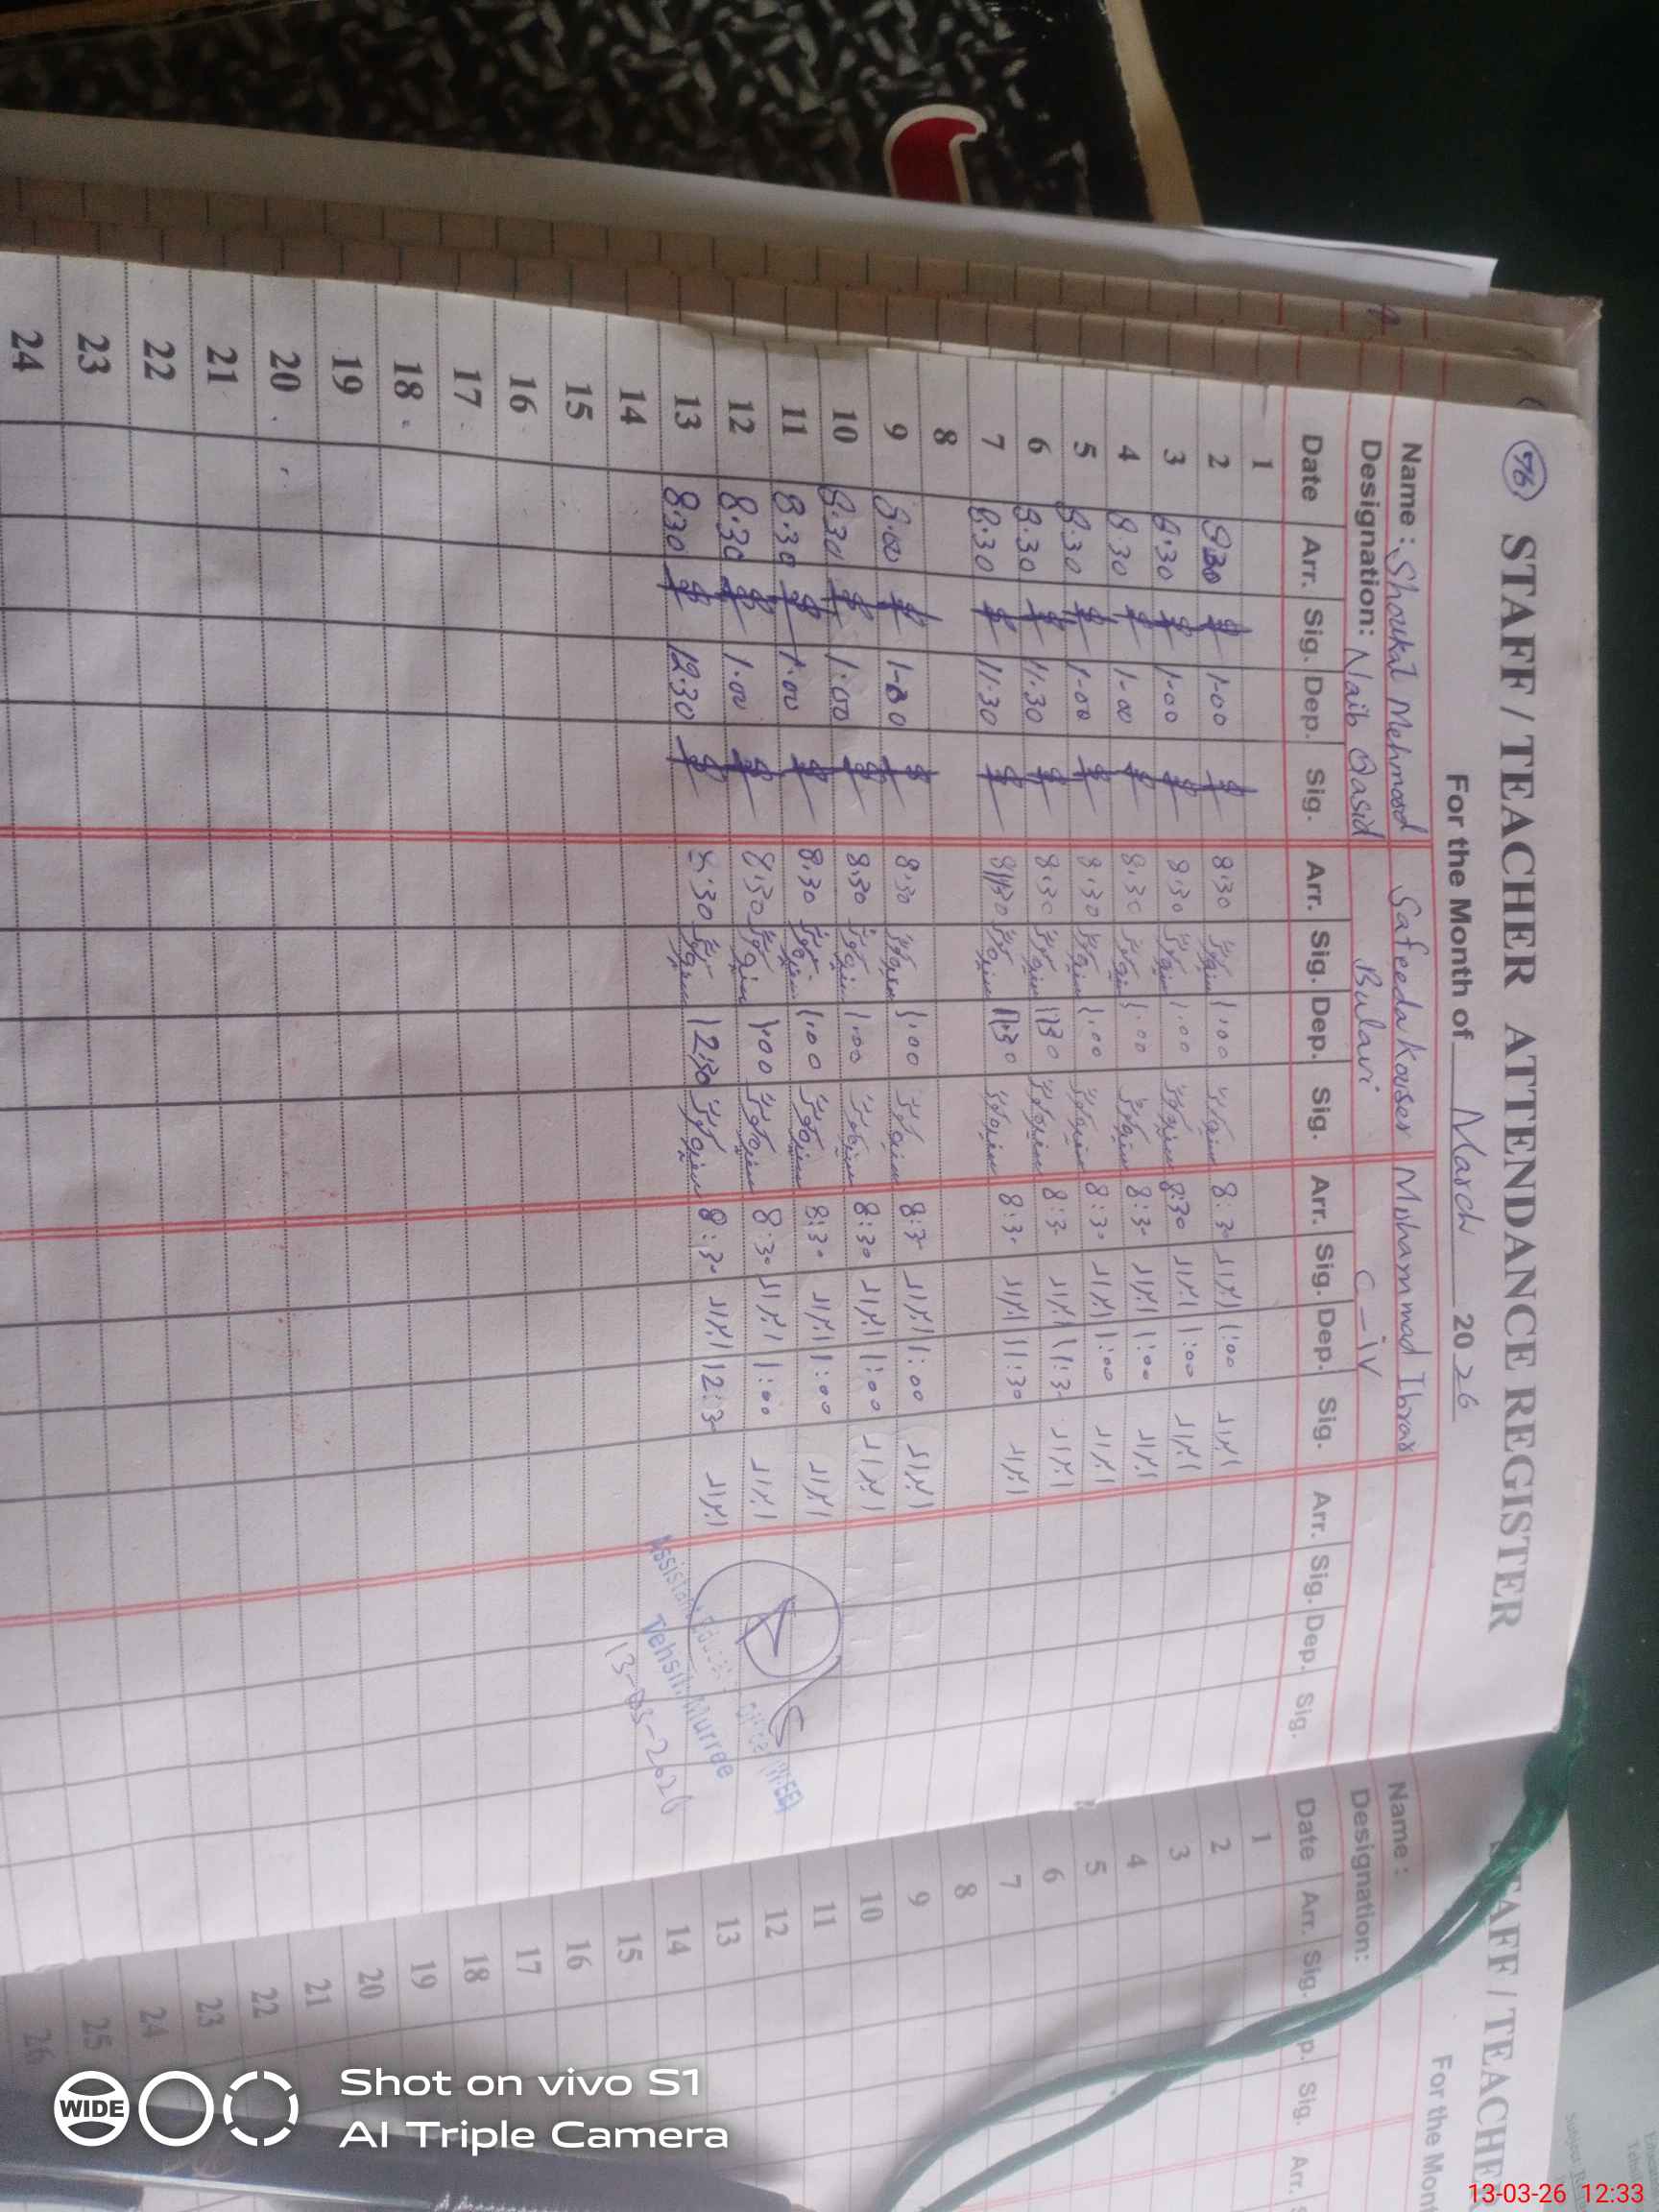 76
STAFF / TEACHER ATTENDANCE REGISTER
For the Month of March 2026
Name : Shoukat Mehmood Safeeda Kouser Mohammad Ibrar
Designation: Naib Qasid Bulawi C-iv
Date Arr. Sig. Dep. Sig. Arr. Sig. Dep. Sig. Arr. Sig. Dep. Sig. Arr. Sig. Dep. Sig.
1
2 8:30 1-00 8:30 1:00 8:30 ابرار 1:00 ابرار
3 8:30 1-00 8:30 1:00 8:30 ابرار 1:00 ابرار
4 8.30 1-00 8:30 1:00 8:30 ابرار 1:00 ابرار
5 8.30 1-00 8:30 1:00 8:30 ابرار 1:00 ابرار
6 8.30 11.30 8:30 1130 8:30 ابرار 11:30 ابرار
7 8.30 11.30 8:30 11:30 8:30 ابرار 11:30 ابرار
8
9 8:30 1:00 8:30 ابرار 1:00 ابرار
10 8.30 1:00 8:30 1:00 8:30 ابرار 1:00 ابرار
11 8.30 1.00 8:30 1:00 8:30 ابرار 1:00 ابرار
12 8.30 1.00 8:30 1:00 8:30 ابرار 1:00 ابرار
13 8.30 12.30 8:30 12:30 8:30 ابرار 12:30 ابرار
14
15
16
17
18
19
20
21
22
23
24
Assistant
Tehsil Murree
13-03-2026
STAFF / TEACHER
For the Mont
Name :
Designation:
Date Arr. Sig. Dep. Sig. Arr.
1
2
3
4
5
6
7
8
9
10
11
12
13
14
15
16
17
18
19
20
21
22
23
24
25
26
WIDE
Shot on vivo S1
AI Triple Camera
13-03-26 12:33